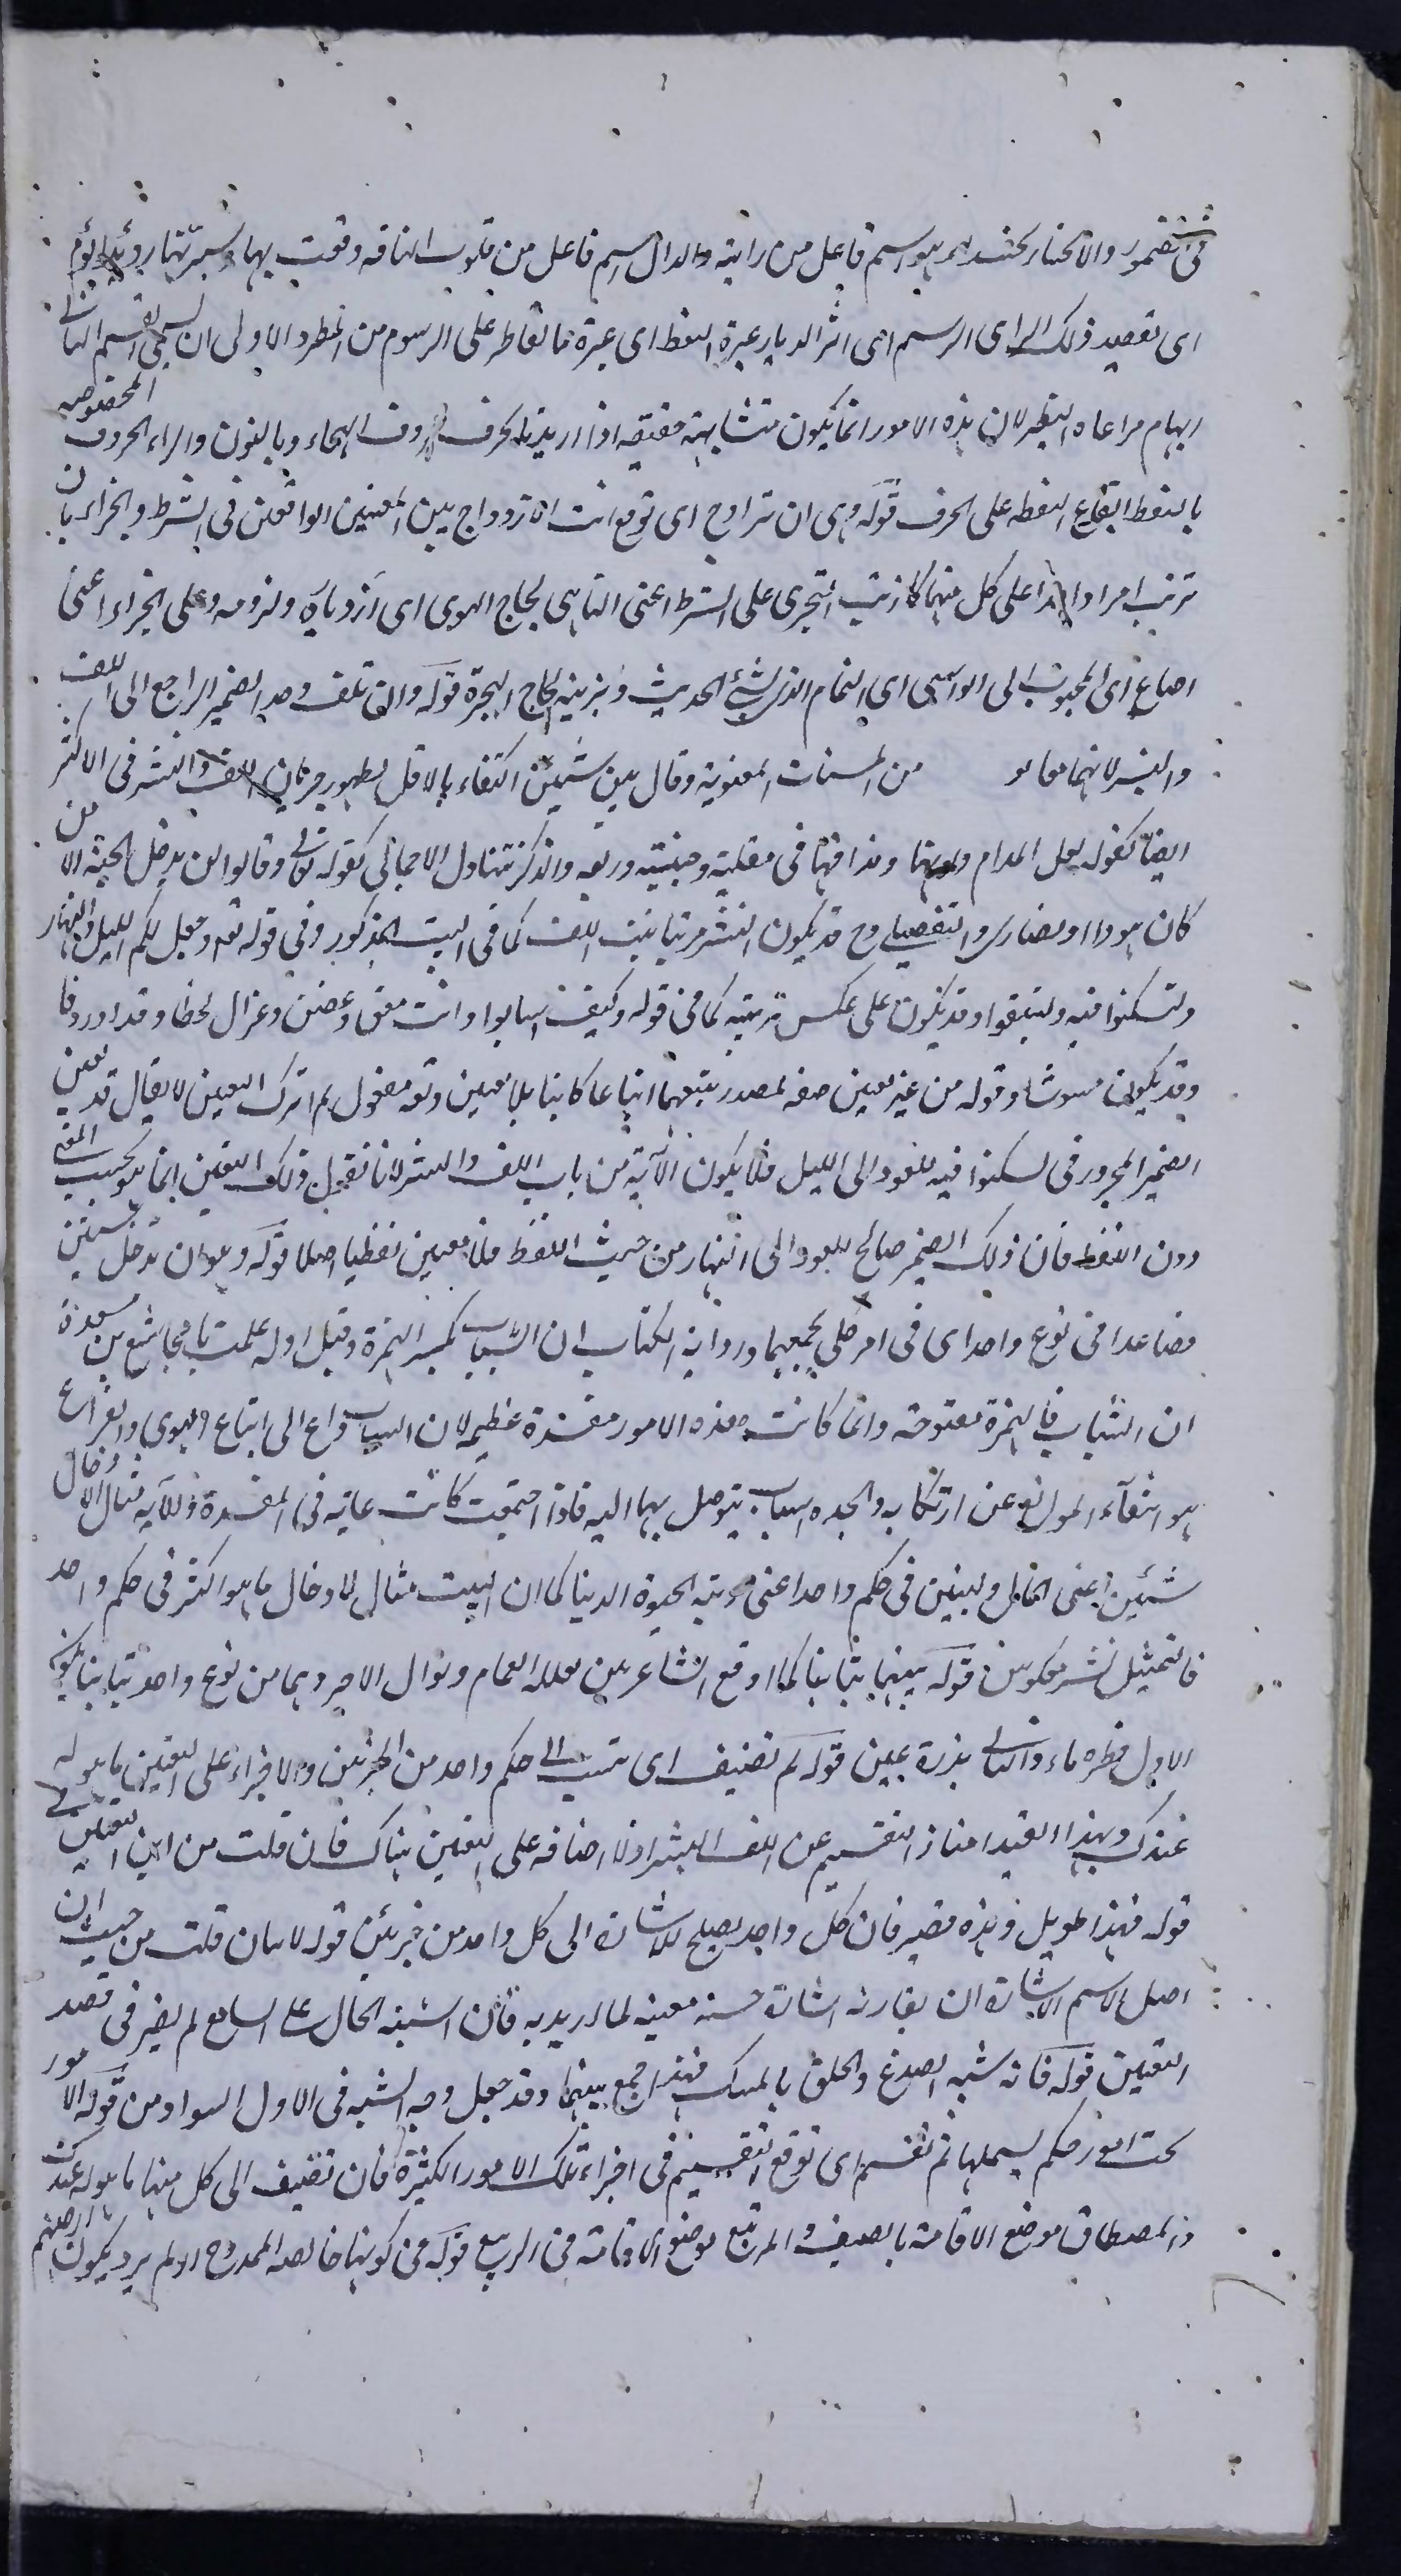 في الضمور والانحناء تحت راء هو اسم فاعل من رايته والدال اسم فاعل من قلوب الناقة وقعت بها وسيرتها رويدا يؤم
اى تقصد ذلك الراى الرسم اى اثر الديار غيرة النقط اى غيره ما تقاطر على الرسوم من المطر والاولى ان يسمى القسم الثاني
ايهام مراعاة النظير لان هذه الامور انما يكون متشابهة حقيقة اذا اريد بالحرف حروف الهجاء وبالنون والراء الحروف المخصوصة
بالنقط ايقاع النقطة على الحرف قوله وهى ان تزاوج اى توقع انت الازدواج بين المعنيين الواقعين فى الشرط والجزاء بان
ترتب امرا واحدا على كل منهما كما رتب البحترى على الشرط اعنى الناهى لجاج الهوى اى ازدياده ولزومه وعلى الجزاء اعنى
اصاغ اى المحبوب الى الواشى اى النمام الذى يشئ الحديث ويزينه لجاج الهجرة قوله والف تلف وحد الضمير الراجع الى اللف
والنشر لانهما معا من المحسنات المعنوية وقال بين شيئين اكتفاء بالاقل لظهور جريان اللف والنشر فى الاكثر
ايضا كقوله فعل المدام ولونها ومذاقها فى مقلتيه ووجنتيه وريقه والذكر يتناول الاجمالى كقوله تعالى وقالوا لن يدخل الجنة الا من
كان هودا او نصارى والتفصيلى وح قد يكون النشر مرتبا بترتيب اللف كما فى البيت المذكور وفى قوله تعالى وجعل لكم الليل والنهار
ولتسكنوا فيه ولتبتغوا وقد يكون على عكس ترتيبه كما فى قوله وكيف اسلوا وانت حقف وغصن وغزال لحظا وقدا وردفا
وقد يكون مشوشا وقوله من غير تعيين صفة لمصدر يتبعهما اتباعا كائنا بلا تعيين وثقة مفعول له لترك التعيين لا يقال قد تعين
الضمير المجرور فى لتسكنوا فيه للعود الى الليل فلا يكون الآية من باب اللف والنشر لانا نقول ذلك التعين انما هو بحسب المعنى
دون اللفظ فان ذلك الضمير صالح للعود الى النهار من حيث اللفظ فلا تعيين لفظيا اصلا قوله وهو ان تدخل شيئين
فصاعدا فى نوع واحد اى فى امر كلى يجمعهما ورواية الكتاب ان الشباب بكسر الهمزة وقيل اوله علمت يا مجاشع بن مسعدة
ان الشباب فالهمزة مفتوحة وانما كانت هذه الامور مفسدة عظيمة لان الشباب داع الى اتباع الهوى والفراغ
هو انتفاء الموانع عن ارتكابه والجدة اسباب يتوصل بها اليه فاذا اجتمعت كانت غاية فى المفسدة والآية مثال لادخال
شيئين اعنى المال والبنين فى حكم واحد اعنى زينة الحيوة الدنيا كما ان البيت مثال لادخال ما هو اكثر فى حكم واحد
فالتمثيل نشر معكوس قوله بينهما تباينا كما اوقع الشاعر بين نوال الغمام ونوال الامير وهما من نوع واحد تباينا بكون
الاول قطرة ماء والثانى بدرة عين قوله ثم تضيف اى تنسب الى حكم واحد من الجزئين والاجزاء على التعيين ما هو له
عندك وبهذا القيد امتاز التقسيم عن اللف والنشر اذ لا اضافة على التعيين هناك فان قلت من اين التعيين فى
قوله فهذا طويل وهذه قصير فان كل واحد يصلح للاشارة الى كل واحد من جزئين قوله لاسان قلت من حيث ان
اصل الاسم الاشارة ان يقارنه اشارة حسية معينة لما اريد به فان اشتبه الحال على السامع لم يضر فى قصد
التعيين قوله فانه شبه الصدغ والخلق بالمسك فهذا جمع بينهما وقد جعل وجه الشبه فى الاول السواد ومن قوله الامور
تحت امور حكم يشملها ثم تقسم اى توقع التقسيم فى اجزاء تلك الامور الكثيرة فان تضيف الى كل منها ما هو له عندك
والمصطاف موضع الاقامة بالصيف والمرتبع موضع الاقامة فى الربيع قوله فى كونها خالصة الممدوح اولم يرد بكون ارضهم